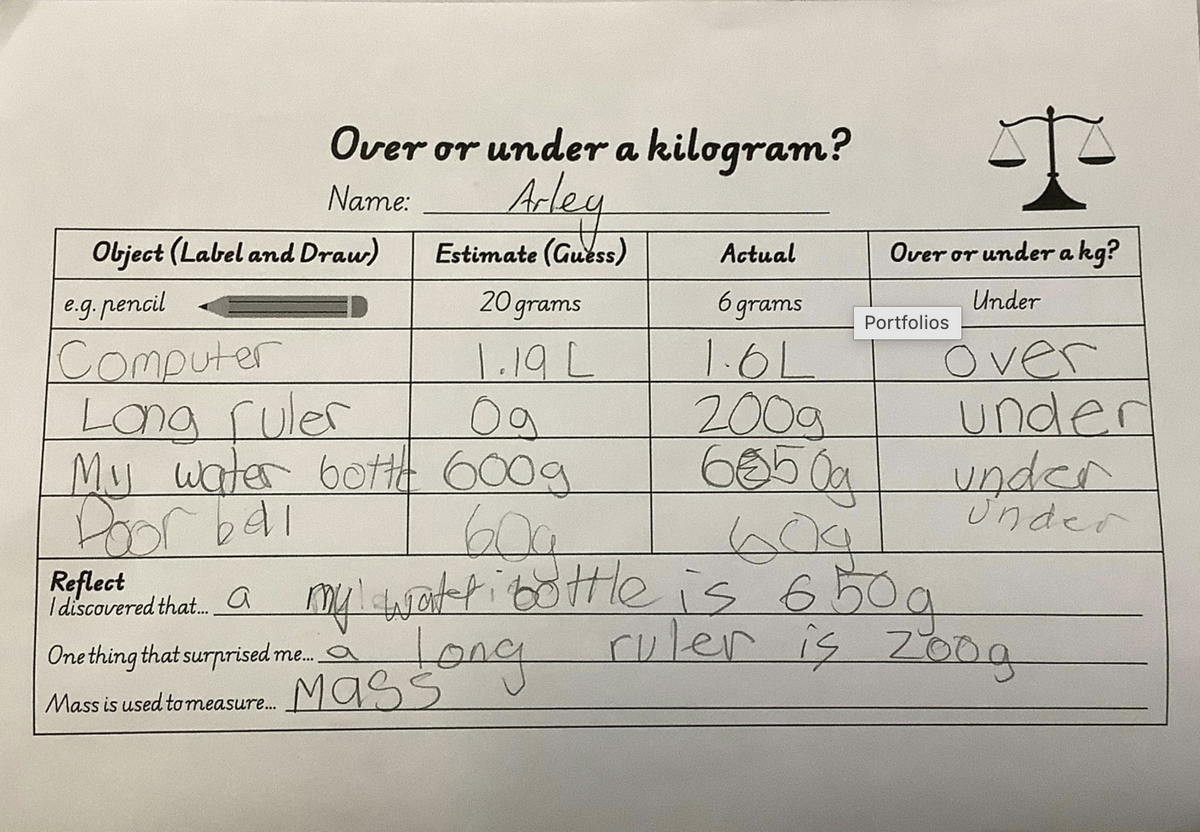 Over or under a kilogram?
Name: Arley
Object (Label and Draw) Estimate (Guess) Actual Over or under a kg?
e.g. pencil 20 grams 6 grams Under
Portfolios
Computer 1.19 L 1.6L over
Long ruler 0g 200g under
My water bottle 600g 650g under
Door bell 60g 60g under
Reflect
I discovered that... a my water bottle is 650g
One thing that surprised me... a long ruler is 200g
Mass is used to measure... Mass